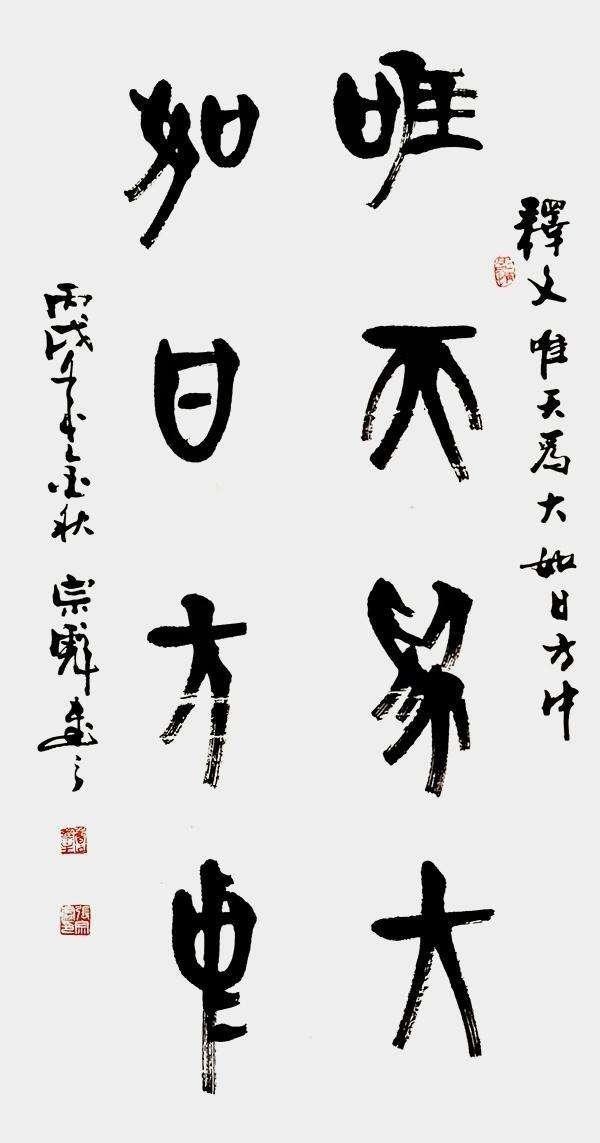 釋文 唯天爲大如日方中
唯天爲大
如日方中
丙戌年金秋 宗書之